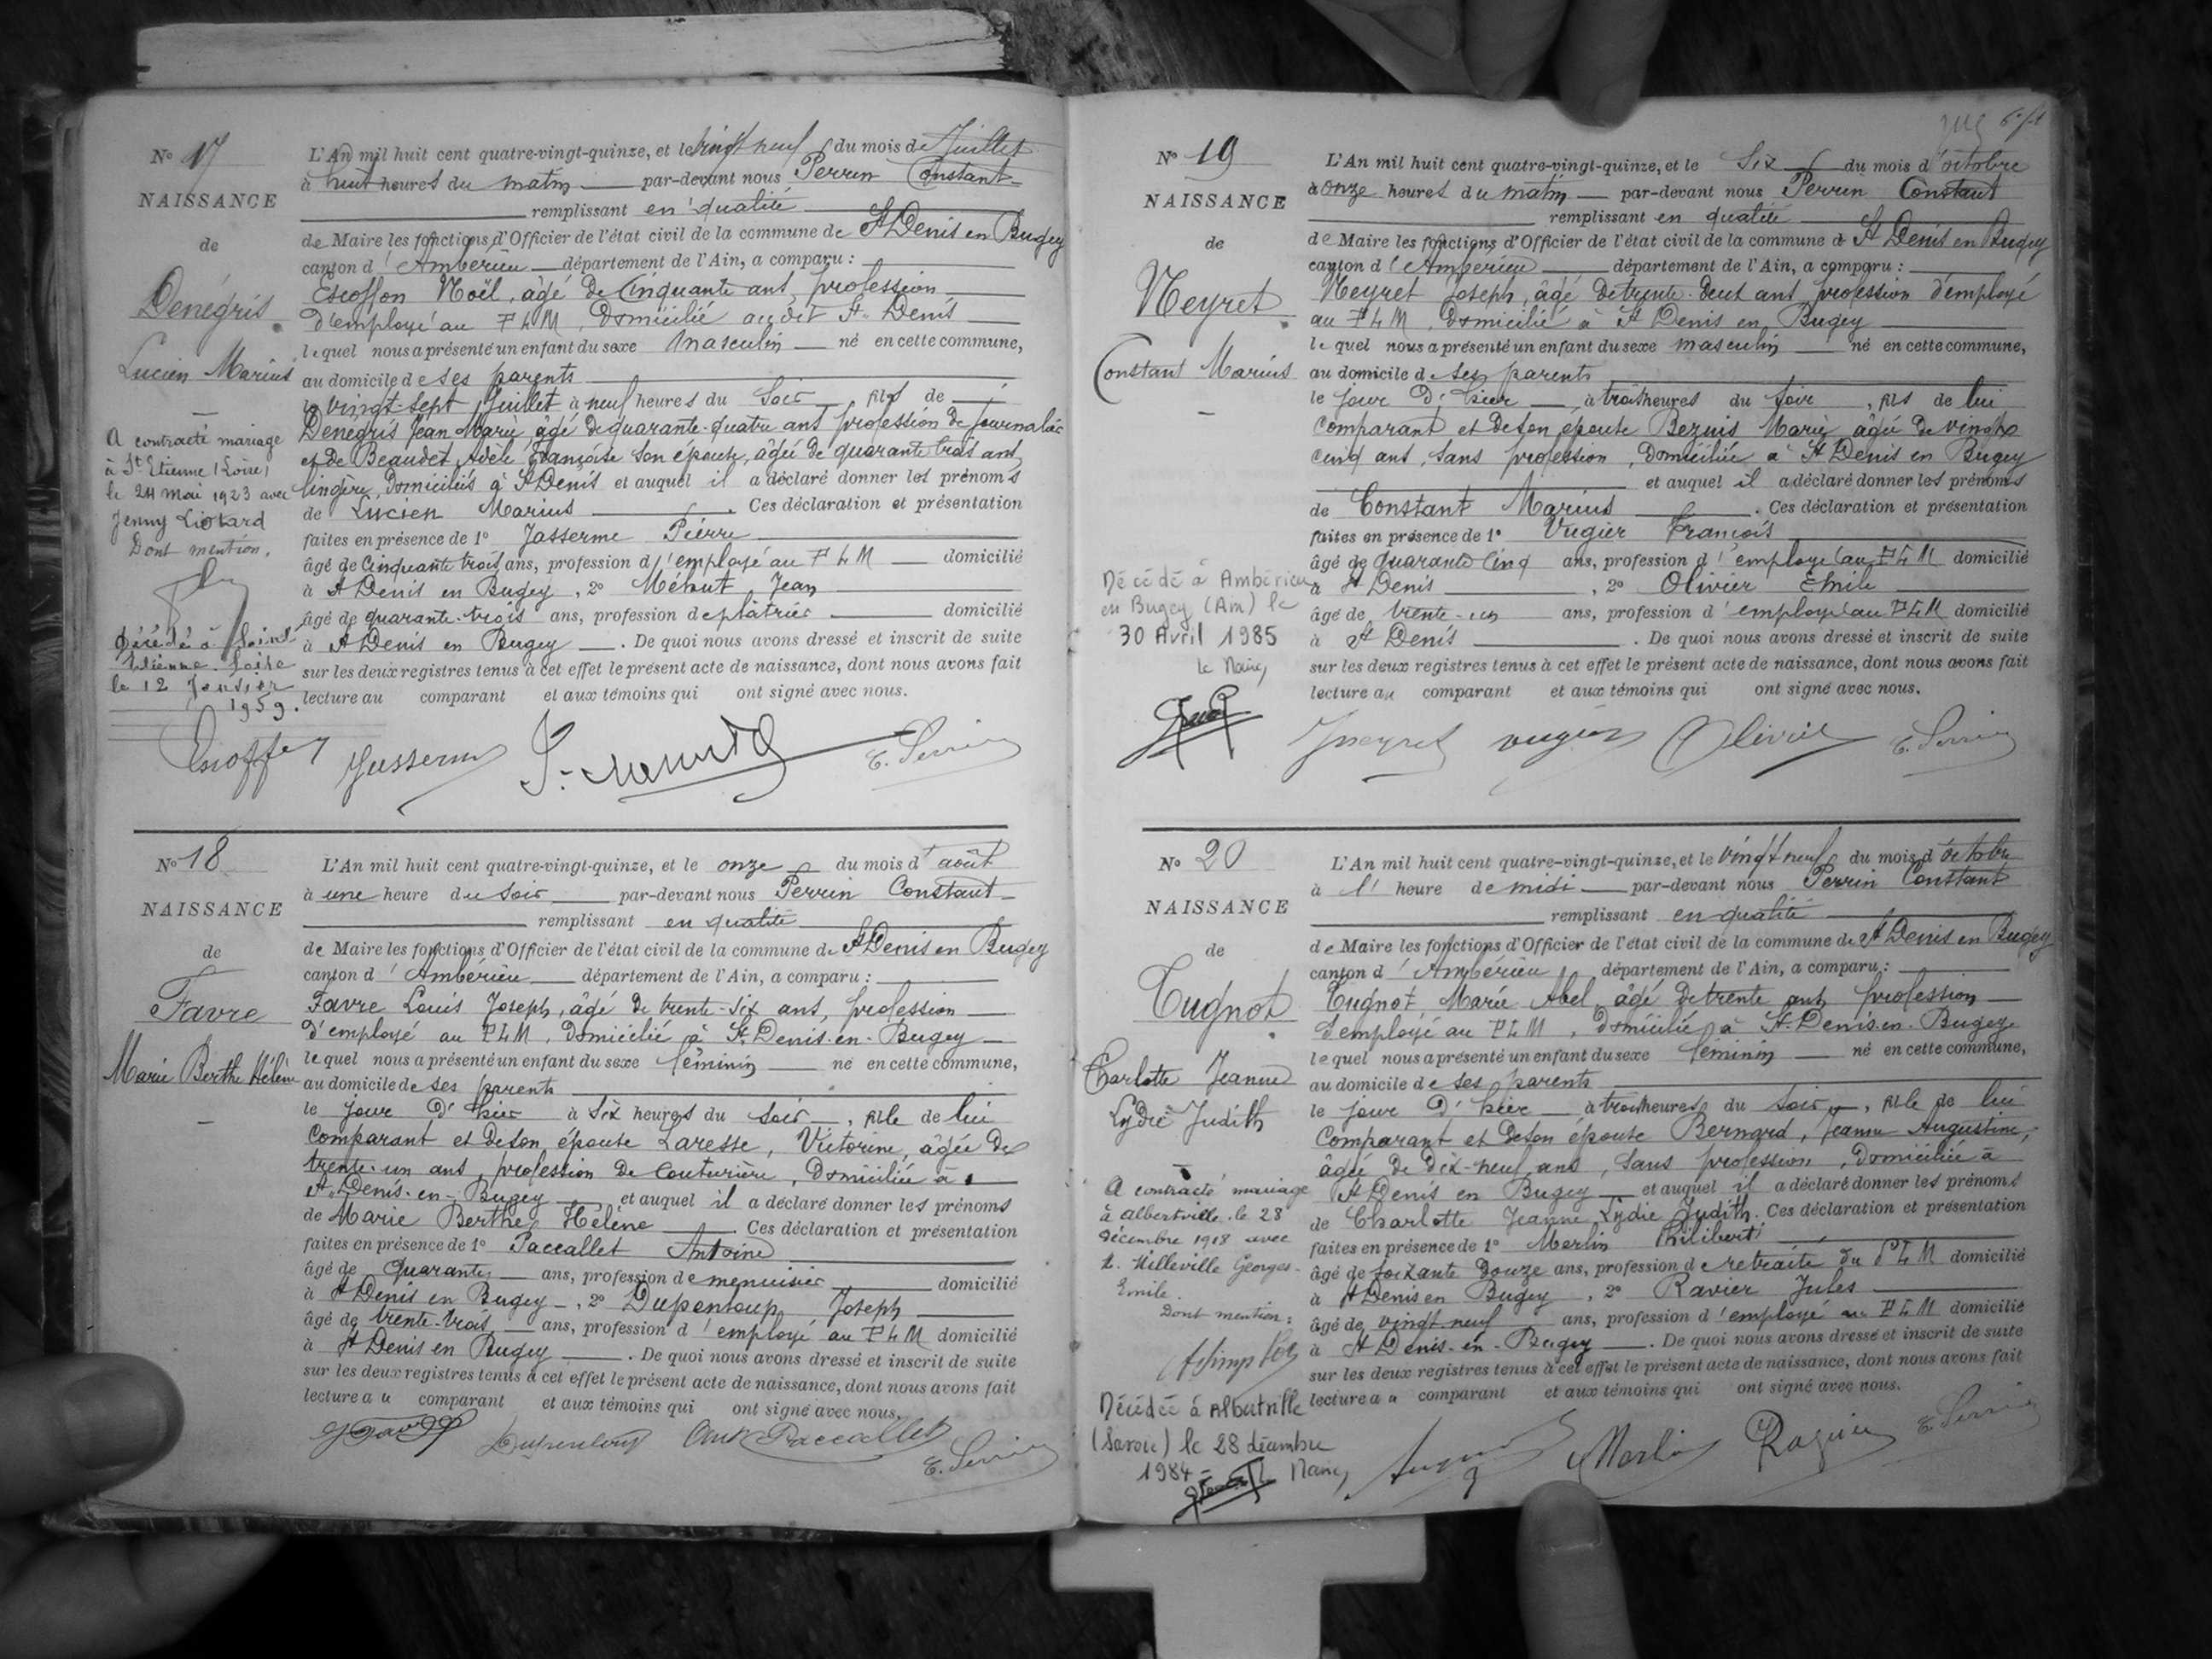 N° 17
NAISSANCE
de
Denégris
Lucien Marius
A contracté mariage
à St Etienne (Loire)
le 24 mai 1923 avec
Jenny Liotard
Dont mention.
Décédé à Saint
Etienne Loire
le 12 Janvier
1959.
L'An mil huit cent quatre-vingt-quinze, et le vingt neuf du mois de Juillet
à huit heures du matin par-devant nous Perrin Constant
remplissant en qualité
de Maire les fonctions d'Officier de l'état civil de la commune de St Denis en Bugey
canton d'Ambérieu département de l'Ain, a comparu :
Escoffon Noël, âgé de Cinquante ans, profession
d'employé au PLM, domicilié audit St Denis
lequel nous a présenté un enfant du sexe masculin né en cette commune,
au domicile de ses parents
le vingt-sept Juillet à neuf heures du soir fils de
Denegris Jean Marie, âgé de quarante-quatre ans profession de journalier
et de Beaudet Adèle Françoise son épouse, âgée de quarante trois ans,
lingère, domiciliés à St Denis et auquel il a déclaré donner les prénoms
de Lucien Marius . Ces déclaration et présentation
faites en présence de 1° Jasserme Pierre
âgé de Cinquante trois ans, profession d'employé au PLM domicilié
à St Denis en Bugey , 2° Méhut Jean
âgé de quarante-trois ans, profession de plâtrier domicilié
à St Denis en Bugey . De quoi nous avons dressé et inscrit de suite
sur les deux registres tenus à cet effet le présent acte de naissance, dont nous avons fait
lecture au comparant et aux témoins qui ont signé avec nous.
E. Perrin
N° 18
NAISSANCE
de
Favre
Marie Berthe Hélène
L'An mil huit cent quatre-vingt-quinze, et le onze du mois d'août
à une heure du soir par-devant nous Perrin Constant
remplissant en qualité
de Maire les fonctions d'Officier de l'état civil de la commune de St Denis en Bugey
canton d'Ambérieu département de l'Ain, a comparu :
Favre Louis Joseph, âgé de trente-six ans, profession
d'employé au PLM, domicilié à St Denis-en-Bugey
lequel nous a présenté un enfant du sexe féminin né en cette commune,
au domicile de ses parents
le jour d'hier à six heures du soir , fille de lui
comparant et de son épouse Laresse, Victorine, âgée de
trente-un ans, profession de couturière, domiciliée à
St Denis-en-Bugey et auquel il a déclaré donner les prénoms
de Marie Berthe Hélène . Ces déclaration et présentation
faites en présence de 1° Paccallet Antoine
âgé de Quarante ans, profession de menuisier domicilié
à St Denis en Bugey , 2° Dupenloup Joseph
âgé de trente-trois ans, profession d'employé au PLM domicilié
à St Denis en Bugey . De quoi nous avons dressé et inscrit de suite
sur les deux registres tenus à cet effet le présent acte de naissance, dont nous avons fait
lecture au comparant et aux témoins qui ont signé avec nous.
Dupenloup Paccallet E. Perrin
N° 19
NAISSANCE
de
Neyret
Constant Marius
Décédé à Ambérieu
en Bugey (Ain) le
30 Avril 1985
le Maire,
L'An mil huit cent quatre-vingt-quinze, et le six du mois d'octobre
à onze heures du matin par-devant nous Perrin Constant
remplissant en qualité
de Maire les fonctions d'Officier de l'état civil de la commune de St Denis en Bugey
canton d'Ambérieu département de l'Ain, a comparu :
Neyret Joseph, âgé de trente-deux ans profession d'employé
au PLM, domicilié à St Denis en Bugey
lequel nous a présenté un enfant du sexe masculin né en cette commune,
au domicile de ses parents
le jour d'hier à trois heures du soir , fils de lui
comparant et de son épouse Bezuis Marie âgée de vingt
cinq ans, sans profession, domiciliée à St Denis en Bugey
et auquel il a déclaré donner les prénoms
de Constant Marius . Ces déclaration et présentation
faites en présence de 1° Vugier François
âgé de quarante cinq ans, profession d'employé au PLM domicilié
à St Denis , 2° Olivier Emile
âgé de trente-un ans, profession d'employé au PLM domicilié
à St Denis . De quoi nous avons dressé et inscrit de suite
sur les deux registres tenus à cet effet le présent acte de naissance, dont nous avons fait
lecture au comparant et aux témoins qui ont signé avec nous.
Neyret Vugier Olivier E. Perrin
N° 20
NAISSANCE
de
Tugnot
Charlotte Jeanne
Lydie Judith
A contracté mariage
à Albertville le 28
décembre 1918 avec
Milleville Georges-
Emile.
Dont mention :
Décédée à Albertville
(Savoie) le 28 décembre
1984 - Le Maire,
L'An mil huit cent quatre-vingt-quinze, et le vingt neuf du mois d'octobre
à l'heure de midi par-devant nous Perrin Constant
remplissant en qualité
de Maire les fonctions d'Officier de l'état civil de la commune de St Denis en Bugey
canton d'Ambérieu département de l'Ain, a comparu :
Tugnot Marie Abel âgé de trente ans profession
d'employé au PLM, domicilié à St Denis-en-Bugey
lequel nous a présenté un enfant du sexe féminin né en cette commune,
au domicile de ses parents
le jour d'hier à trois heures du soir , fille de lui
comparant et de son épouse Bernard, Jeanne Augustine,
âgée de dix-neuf ans, sans profession, domiciliée à
St Denis en Bugey et auquel il a déclaré donner les prénoms
de Charlotte Jeanne Lydie Judith. Ces déclaration et présentation
faites en présence de 1° Merlin Philibert
âgé de soixante douze ans, profession de retraité du PLM domicilié
à St Denis en Bugey , 2° Ravier Jules
âgé de vingt-neuf ans, profession d'employé au PLM domicilié
à St Denis-en-Bugey . De quoi nous avons dressé et inscrit de suite
sur les deux registres tenus à cet effet le présent acte de naissance, dont nous avons fait
lecture au comparant et aux témoins qui ont signé avec nous.
Merlin E. Perrin